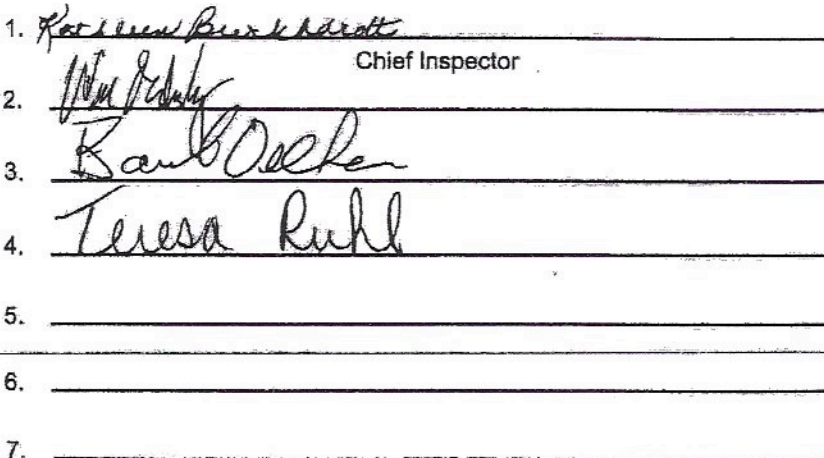 1. Kathleen Burkhardt
Chief Inspector
2. Wm
3. Barb Oelken
4. Teresa Ruhl
5.
6.
7.